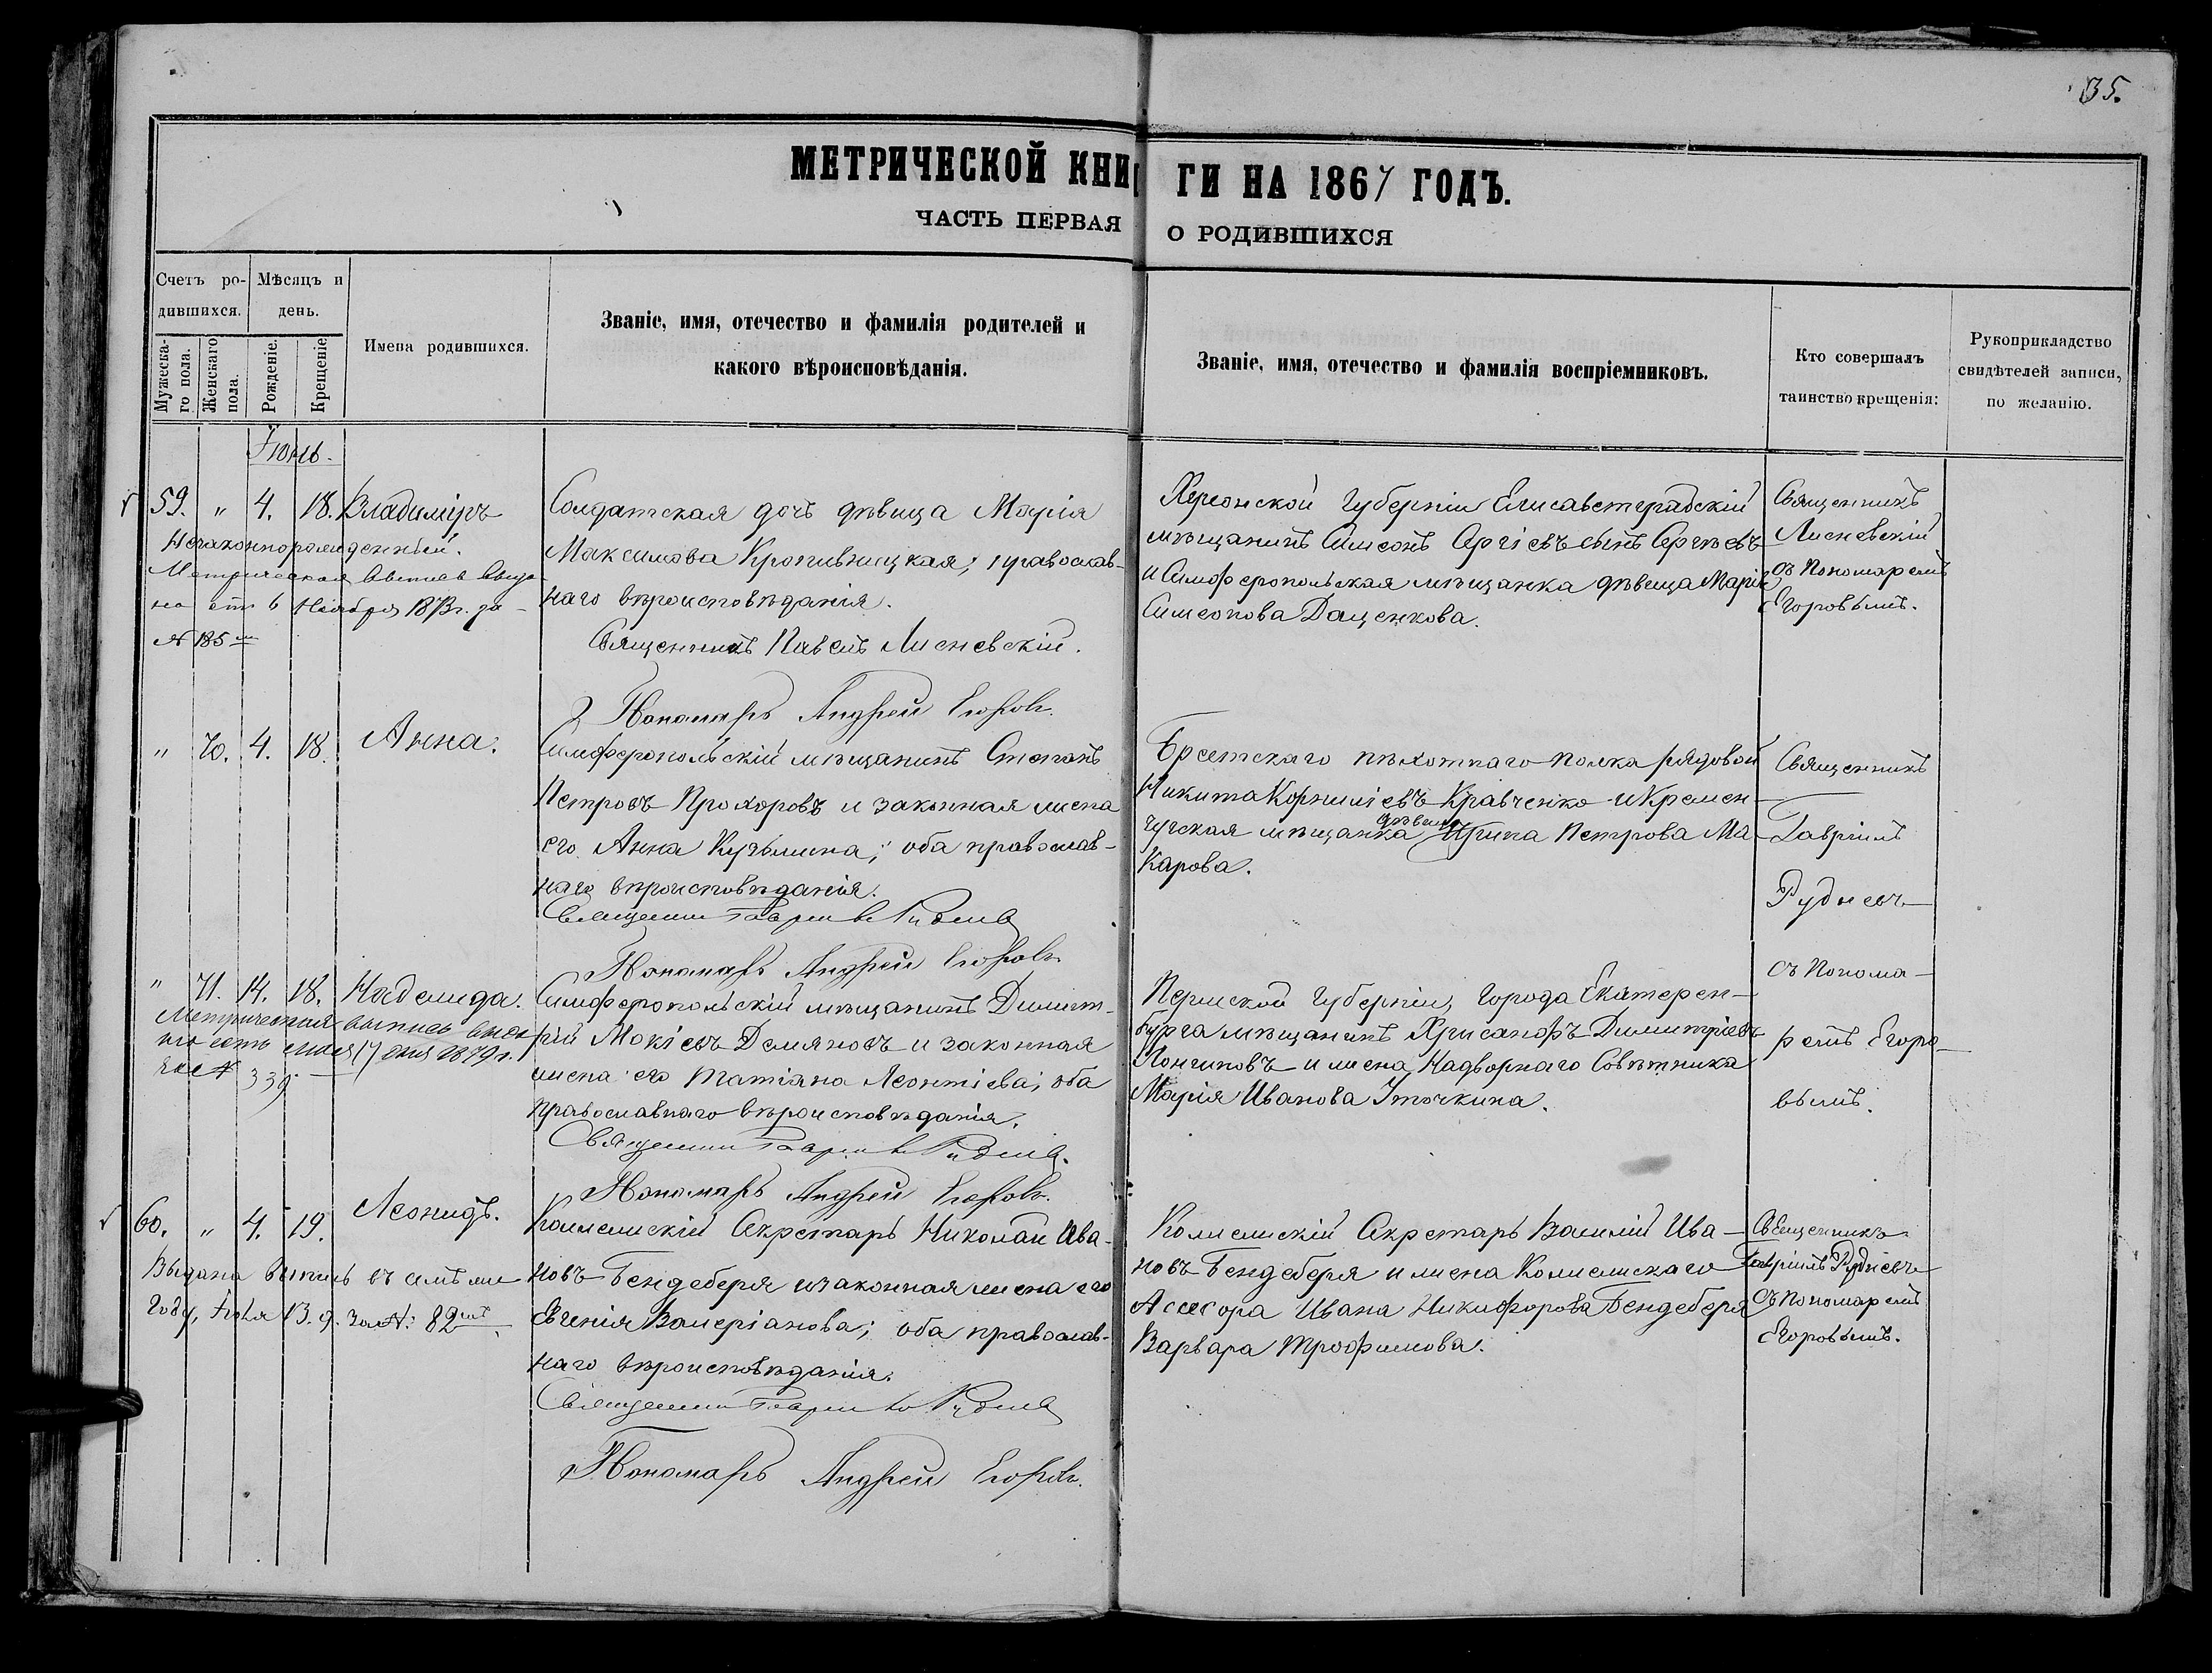 35.
МЕТРИЧЕСКОЙ КНИГИ НА 1867 ГОДЪ.
ЧАСТЬ ПЕРВАЯ О РОДИВШИХСЯ
Счетъ родившихся.
Мужескаго пола.
Женскаго пола.
Мѣсяцъ и день.
Рожденіе.
Крещеніе
Имена родившихся.
Званіе, имя, отечество и фамилія родителей и
какого вѣроисповѣданія.
Званіе, имя, отечество и фамилія воспріемниковъ.
Кто совершалъ
таинство крещенія:
Рукоприкладство
свидѣтелей записи,
по желанію.
Іюнь.
59. " 4. 18. Владиміръ
Незаконнорожденный.
Метрическая выпись выда-
на 6 Ноября 1873 г. за
№ 185
Солдатская дочь дѣвица Марія
Максимова Кропивницкая; православ-
наго вѣроисповѣданія.
Священникъ Павелъ Лисневскій.
Пономарь Андрей Егоровъ.
Херсонской Губерніи Елисаветградскій
мѣщанинъ Симеонъ Сергіевъ сынъ Сергѣевъ
и Симферопольская мѣщанка дѣвица Марія
Симеонова Даценкова.
Священникъ
Лисневскій
съ Пономаремъ
Егоровымъ.
" 70. 4. 18. Анна.
Симферопольскій мѣщанинъ Стефанъ
Петровъ Прохоровъ и законная жена
его Анна Кузьмина; оба православ-
наго вѣроисповѣданія.
Священникъ Гавріилъ Рудневъ
Пономарь Андрей Егоровъ.
Брестскаго пѣхотнаго полка рядовой
Никита Корниліевъ Кравченко и Кремен-
чугская мѣщанка дѣвица Ирина Петрова Ма-
карова.
Священникъ
Гавріилъ
Рудневъ
съ Понома-
ремъ Егоро-
вымъ.
" 71. 14. 18. Надежда.
Метрическая выпись выда-
на 17 1879 г.
за № 339.
Симферопольскій мѣщанинъ Димит-
рій Мокіевъ Демяновъ и законная
жена его Татіана Леонтіева; оба
православнаго вѣроисповѣданія.
Священникъ Гавріилъ Рудневъ.
Пономарь Андрей Егоровъ.
Пермской Губерніи, Города Екатерен-
бурга мѣщанинъ Хрисанфъ Димитріевъ
Лончиновъ и жена Надворнаго Совѣтника
Марія Иванова Уточкина.
60. " 4. 19. Леонидъ.
Выдана выпись въ семъ же
году, Іюля 13. д. за №: 82
Коллежскій Секретарь Николай Ива-
новъ Бендеберя и законная жена его
Евгенія Валеріанова; оба православ-
наго вѣроисповѣданія.
Священникъ Гавріилъ Рудневъ
Пономарь Андрей Егоровъ.
Коллежскій Секретарь Василій Ива-
новъ Бендеберя и жена Коллежскаго
Ассесора Ивана Никифорова Бендеберя
Варвара Трофимова.
Священникъ
Гавріилъ Рудневъ
съ Пономаремъ
Егоровымъ.